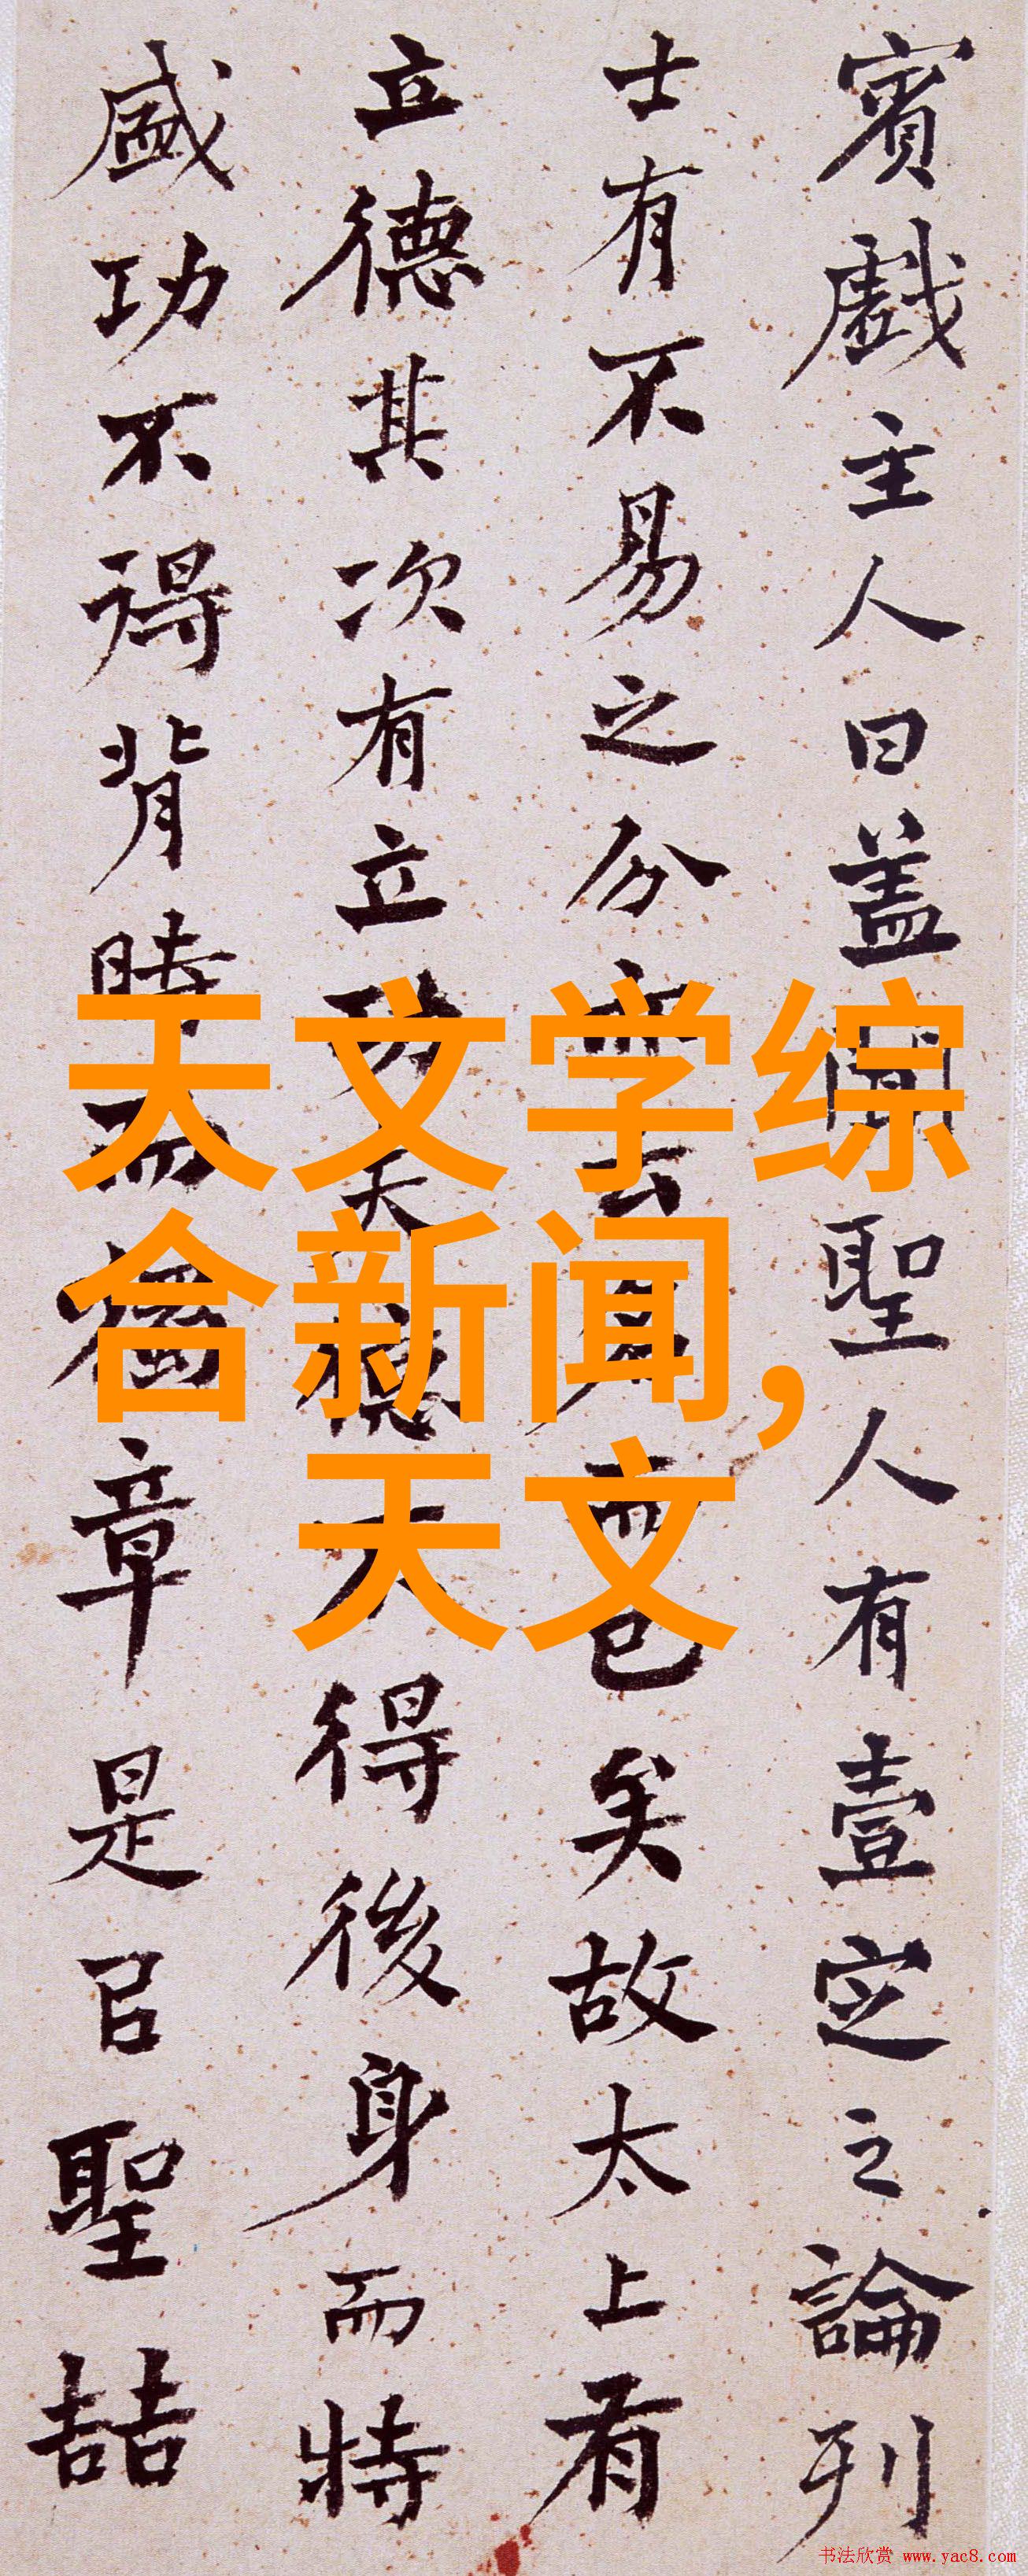 賓戲主人曰盖聞聖人有壹定之論列
士有不易之分亦云名而已矣故太上有
立德其次有立功夫德不得後身而特
盛功不得背時而獨章是㠯聖喆
天文学综
合新闻,
天文
书法欣赏 www.yac8.com